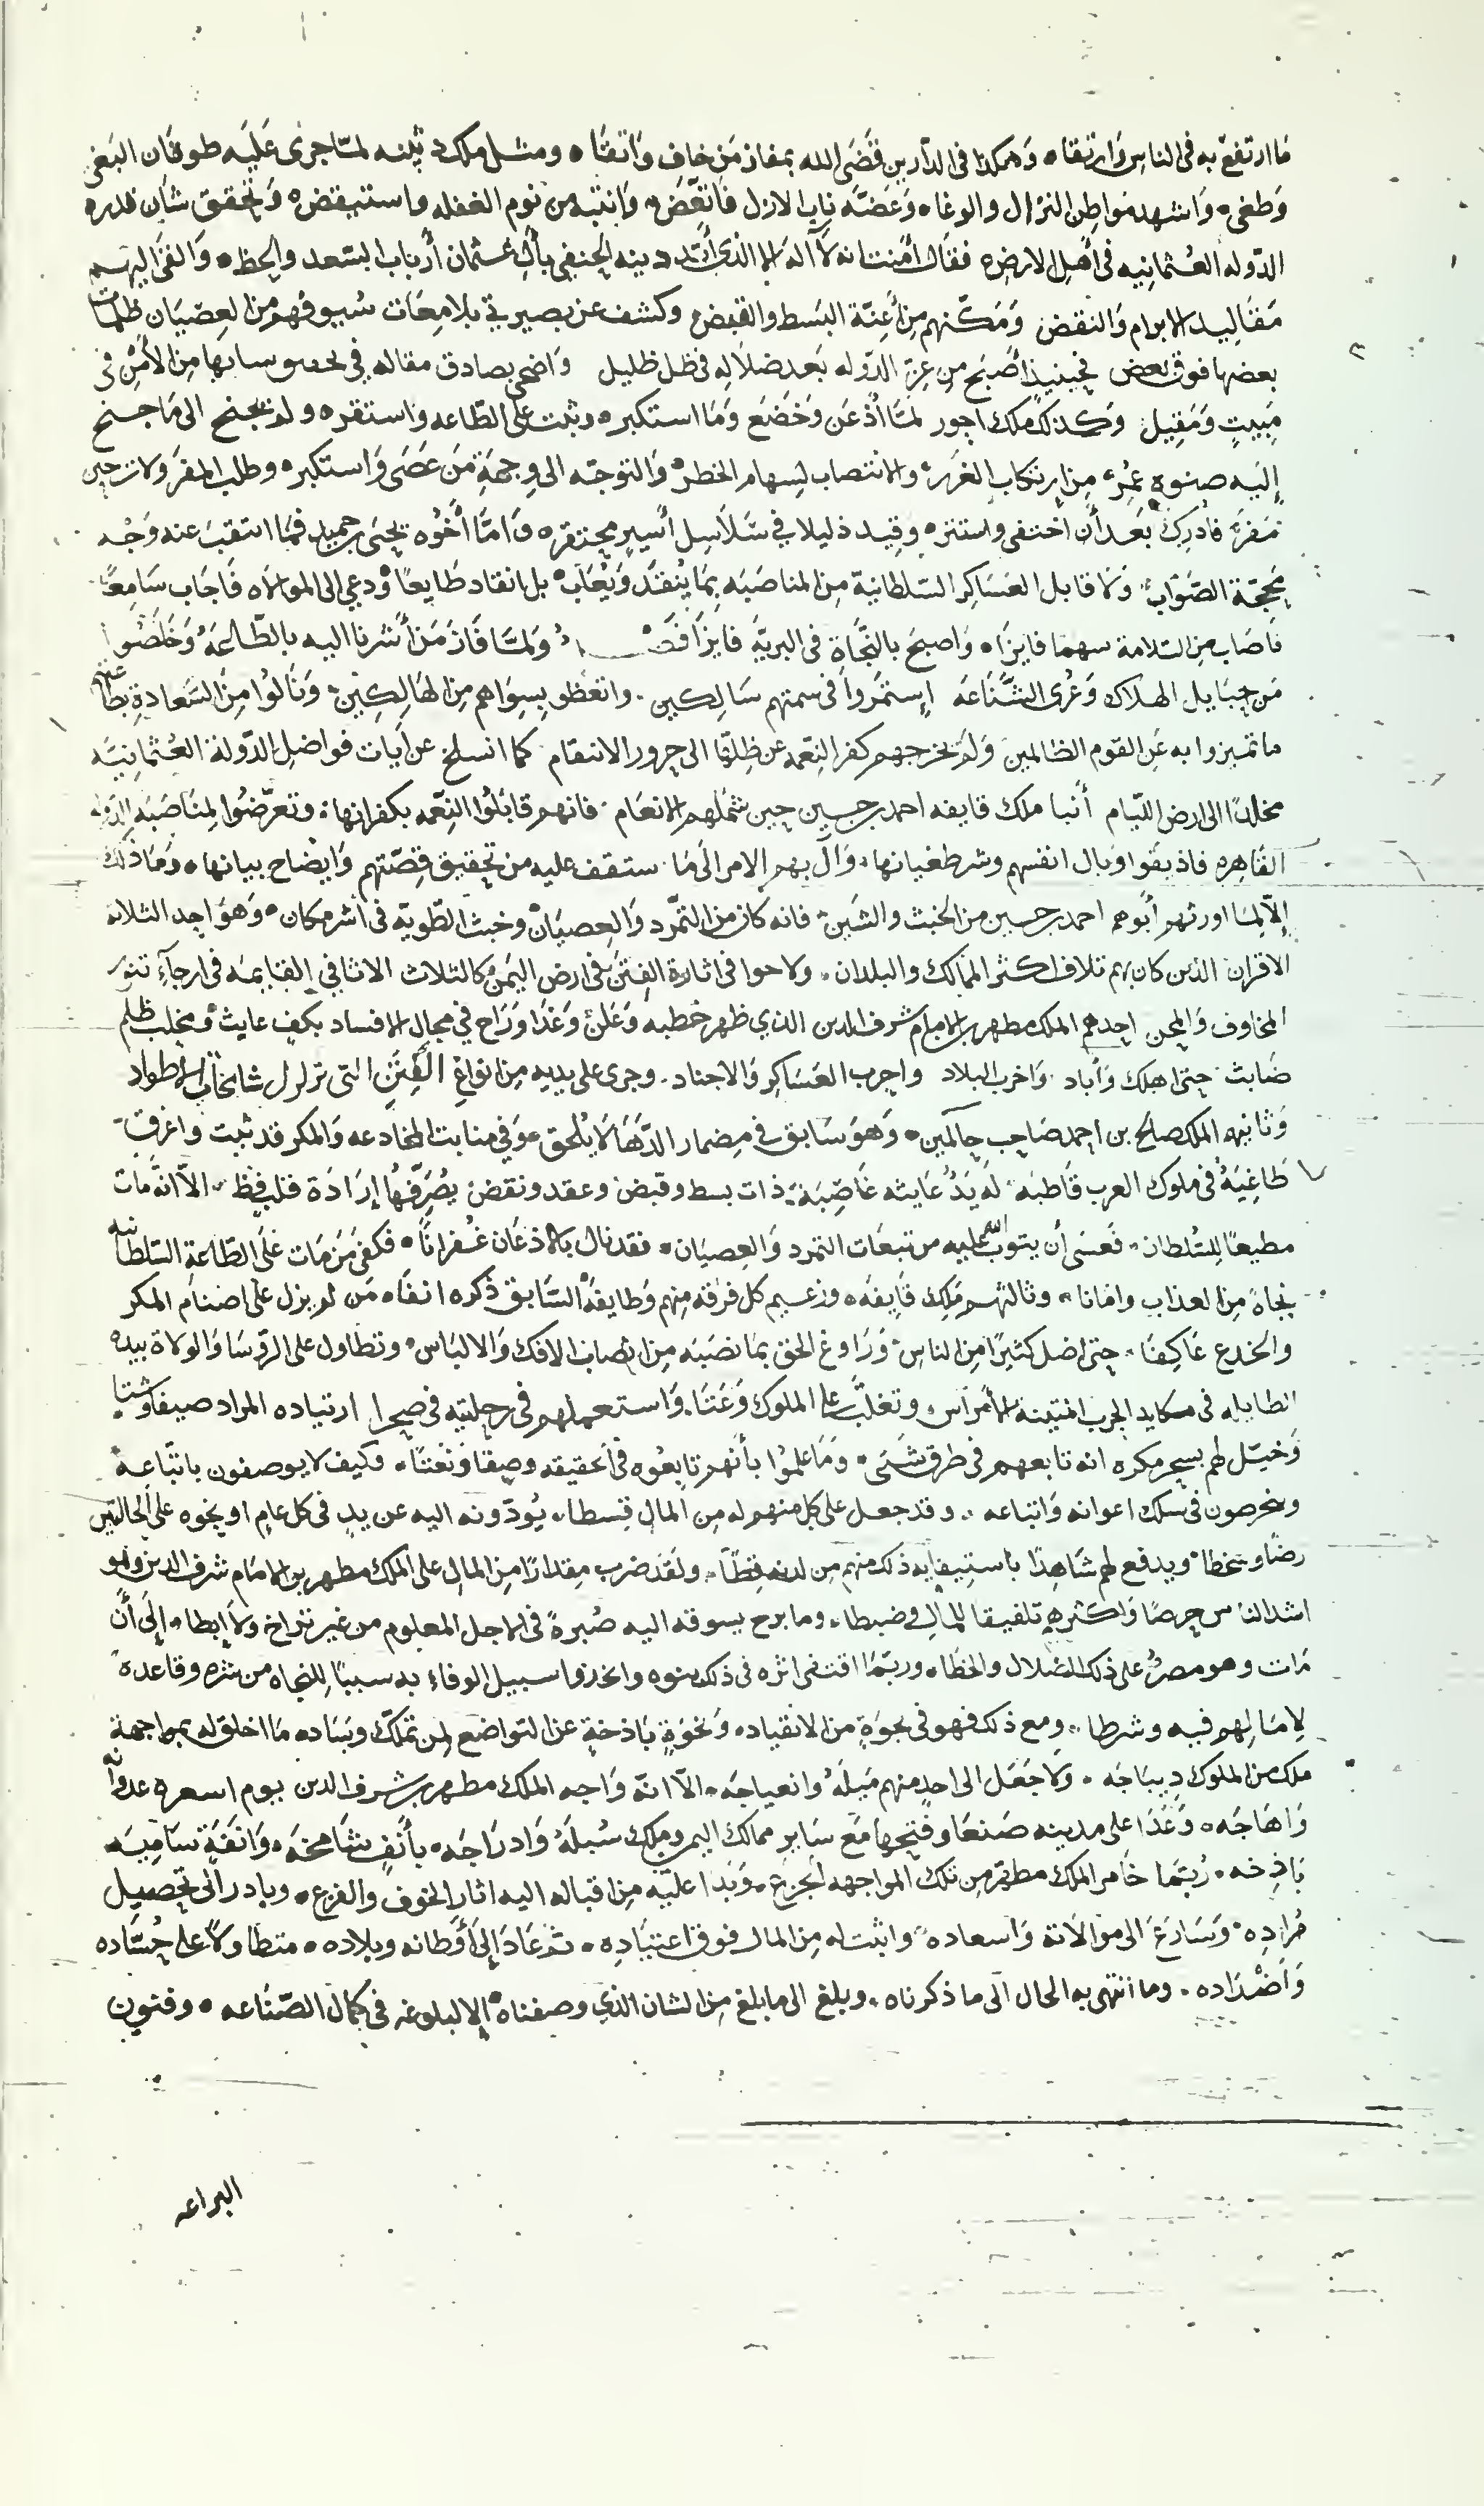 ما ارتفع به فى الناس وارتقاه وهكذا فى الدارين قضى الله بمفاز من خاف واتقاه ومثل ملك ثلثه لما جرى عليه طوفان البغى
وطغى واشهد مواطن النزال والوغاه وعضته ناب الازل فاتعض وانتبه من نوم الغفله واستيقض وتحقق شان قدره
الدوله العثمانيه فى أهل الارض فقال امنت انه لا آله الا الذى أيد دينه الحنفى بأل عثمان أرباب السعد والحظ والقى اليهم
مقاليد الابرام والنقض ومكنهم من أعنة البسط والقبض وكشف عن بصيرتى بلامعات سيوفهم من العصيان ظلمات
بعضها فوق بعض فحينيذ أصبح من عز الدوله بعد ضلاله فى ظل ظليل واضحى بصادق مقاله فى من الأمن فى
مبيت ومقيل وكذلك ملك اجور لما اذعن وخضع وما استكبر وثبت على الطاعه واستقره ولم يجنح الى ما جنح
إليه صنوه عمر من ارتكاب الغرر والانتصاب لسهام الخطر والتوجه الى وجهة من عصى واستكبره وطلب المفر ولات حين
مفر فادرك بعد أن اختفى واستتره وقيد ذليلا فى سلاسل أسير محتقره واما أخوه يحيى بن حميد فما انتقب عنه وجه
محجة الصواب ولا قابل العساكر السلطانية من المناصبه بما ينقد ويعاب بل انقاد طايعا ودعي الى الموالاه فاجاب سامعا
فاصاب من السلامة سهما فايزاه واصبح بالنجاة فى البريه فايزا ولما فاز من أشرنا اليه بالطاعه وخلصوا
من حبايل الهلاك وعرى الشناعه إستمروا فى سمتهم سالكين واتعظو بسواهم من الهالكين ونالوا من السعادة بطاعتهم
ما تميزوا به عن القوم الظالمين ولم يخرجهم كفر النعمه عن ظلها الى حرور الانتقام كما انسلخ عن آيات فواضل الدولة العثمانيه
مخلدا الى ارض الليام أنبا ملك قايفه احمد بن حسين حين شملهم الانعام فانهم قابلوا النعمه بكفرانها وتعرضوا لمناصبة الدوله
القاهره فاذيقوا وبال انفسهم وشر طغيانها وآل بهم الامر الى ما ستقف عليه من تحقيق قصتهم وايضاح بيانها وما ذلك
إلا لما اورثهم أبوهم احمد بن حسين من الخبث والشين فانه كان من التمرد والعصيان وخبث الطويه فى أشر مكان وهو احد الثلاثه
الاقران الذين كان بهم تلاف اكثر الممالك والبلدان ولاحوا فى اثارة الفتن فى ارض اليمن كالثلاث الاثافي القايمه فى ارجآء تنور
المخاوف والمحن احدهم الملك مطهر بن الامام شرف الدين الذي ظهر خطبه وعلن وغدا وراح في مجال الافساد بكف عايث ومخلب ظلم
ضابث حتى اهلك وأباد واخرب البلاد واحرب العساكر والاجناد وجرى على يديه من انواع الفتن التى تزلزل شامخات الاطواد
وثانيهم الملك صالح بن احمد صاحب حالمين وهو سابق فى مضمار الدهاء لا يلحق وفي منابت المخادعه والمكر قد ثبت واغرق
طاغية فى ملوك العرب قاطبه له يد عايثه غاضبة ذات بسط وقبض وعقد ونقض يصرفها إرادة قلب فظ الا انه مات
مطيعا للسلطان فعسى أن يتوب الله عليه من تبعات التمرد والعصيان فقد نال بالاذعان غفرانا فكفى من مات على الطاعة السلطانيه
نجاة من العذاب وامانا وثالثهم ملك قايفه وزعيم كل فرقه منهم وطايفه السابق ذكره انفاه من لم يزل على اصنام المكر
والخدع عاكفا حتى اضل كثيرا من الناس وراوغ الحق بما نصبه من انصاب الافك والالباس وتطاول على الروسا والولاة بيده
الطايله فى مكايد الحرب المتينة الأمراس وتغلب على الملوك وعتا واستعملهم فى رحلتيه فى صحرا ارتياده المراد صيفا وشتا
وخيل لهم بسحر مكره انه تابعهم فى طرق شتى وما علموا بأنهم تابعوه فى الحقيقه وصفا ونعتا وكيف لا يوصفون باتباعه
وينخرصون فى سلك اعوانه واتباعه وقد جعل على كل منهم له من المال قسطا يودونه اليه عن يد فى كل عام او نحوه على الحالتين
رضا وسخطا ويدفع لهم شاهدا باستيفايه ذلك منهم من لدنه قطا ولقد ضرب مقدارا من المال على الملك مطهر بن الامام شرف الدين وهو
اشد الناس حرصا واكثرهم تلفيقا للمال وضبطا وما برح يسوقه اليه صبرة فى الاجل المعلوم من غير تراخ ولا ابطا إلى أن
مات وهو مصر على ذلك الضلال والخطاء وربما اقتفى اثره فى ذلك بنوه واتخذوا سبيل الوفاء به سببا للنجاه من شره وقاعدة
لامالهم فيه وشرطا ومع ذلك فهو فى نجوة من الانقياده ونخوة باذخة عن التواضع لمن تملك وبساده ما اخلق له بمواجهة
ملك من الملوك ديباجه ولا جعل الى احد منهم ميله وانعياجه الا انه واجه الملك مطهر بن شرف الدين يوم اسعره عدوانه
واهاجه وغدا على مدينه صنعا وفتحها مع ساير ممالك اليمن وملك سبله وادراجه بأنف شامخه وانفة ساميه
باذخه ربما خامر الملك مطهر من تلك المواجهه الجزع وبدا عليه من اقباله اليه اثار الخوف والفزع وبادر الى تحصيل
مراده وسارع الى موالاته واسعاده واثبت له من المال فوق اعتياده ثم عاد إلى أوطانه وبلاده متطاولا على حساده
واضداده وما انتهى به الحال الى ما ذكرناه وبلغ الى ما بلغ من الشان الذي وصفناه إلا لبلوغه فى كمال الصناعه وفنون
البراعه